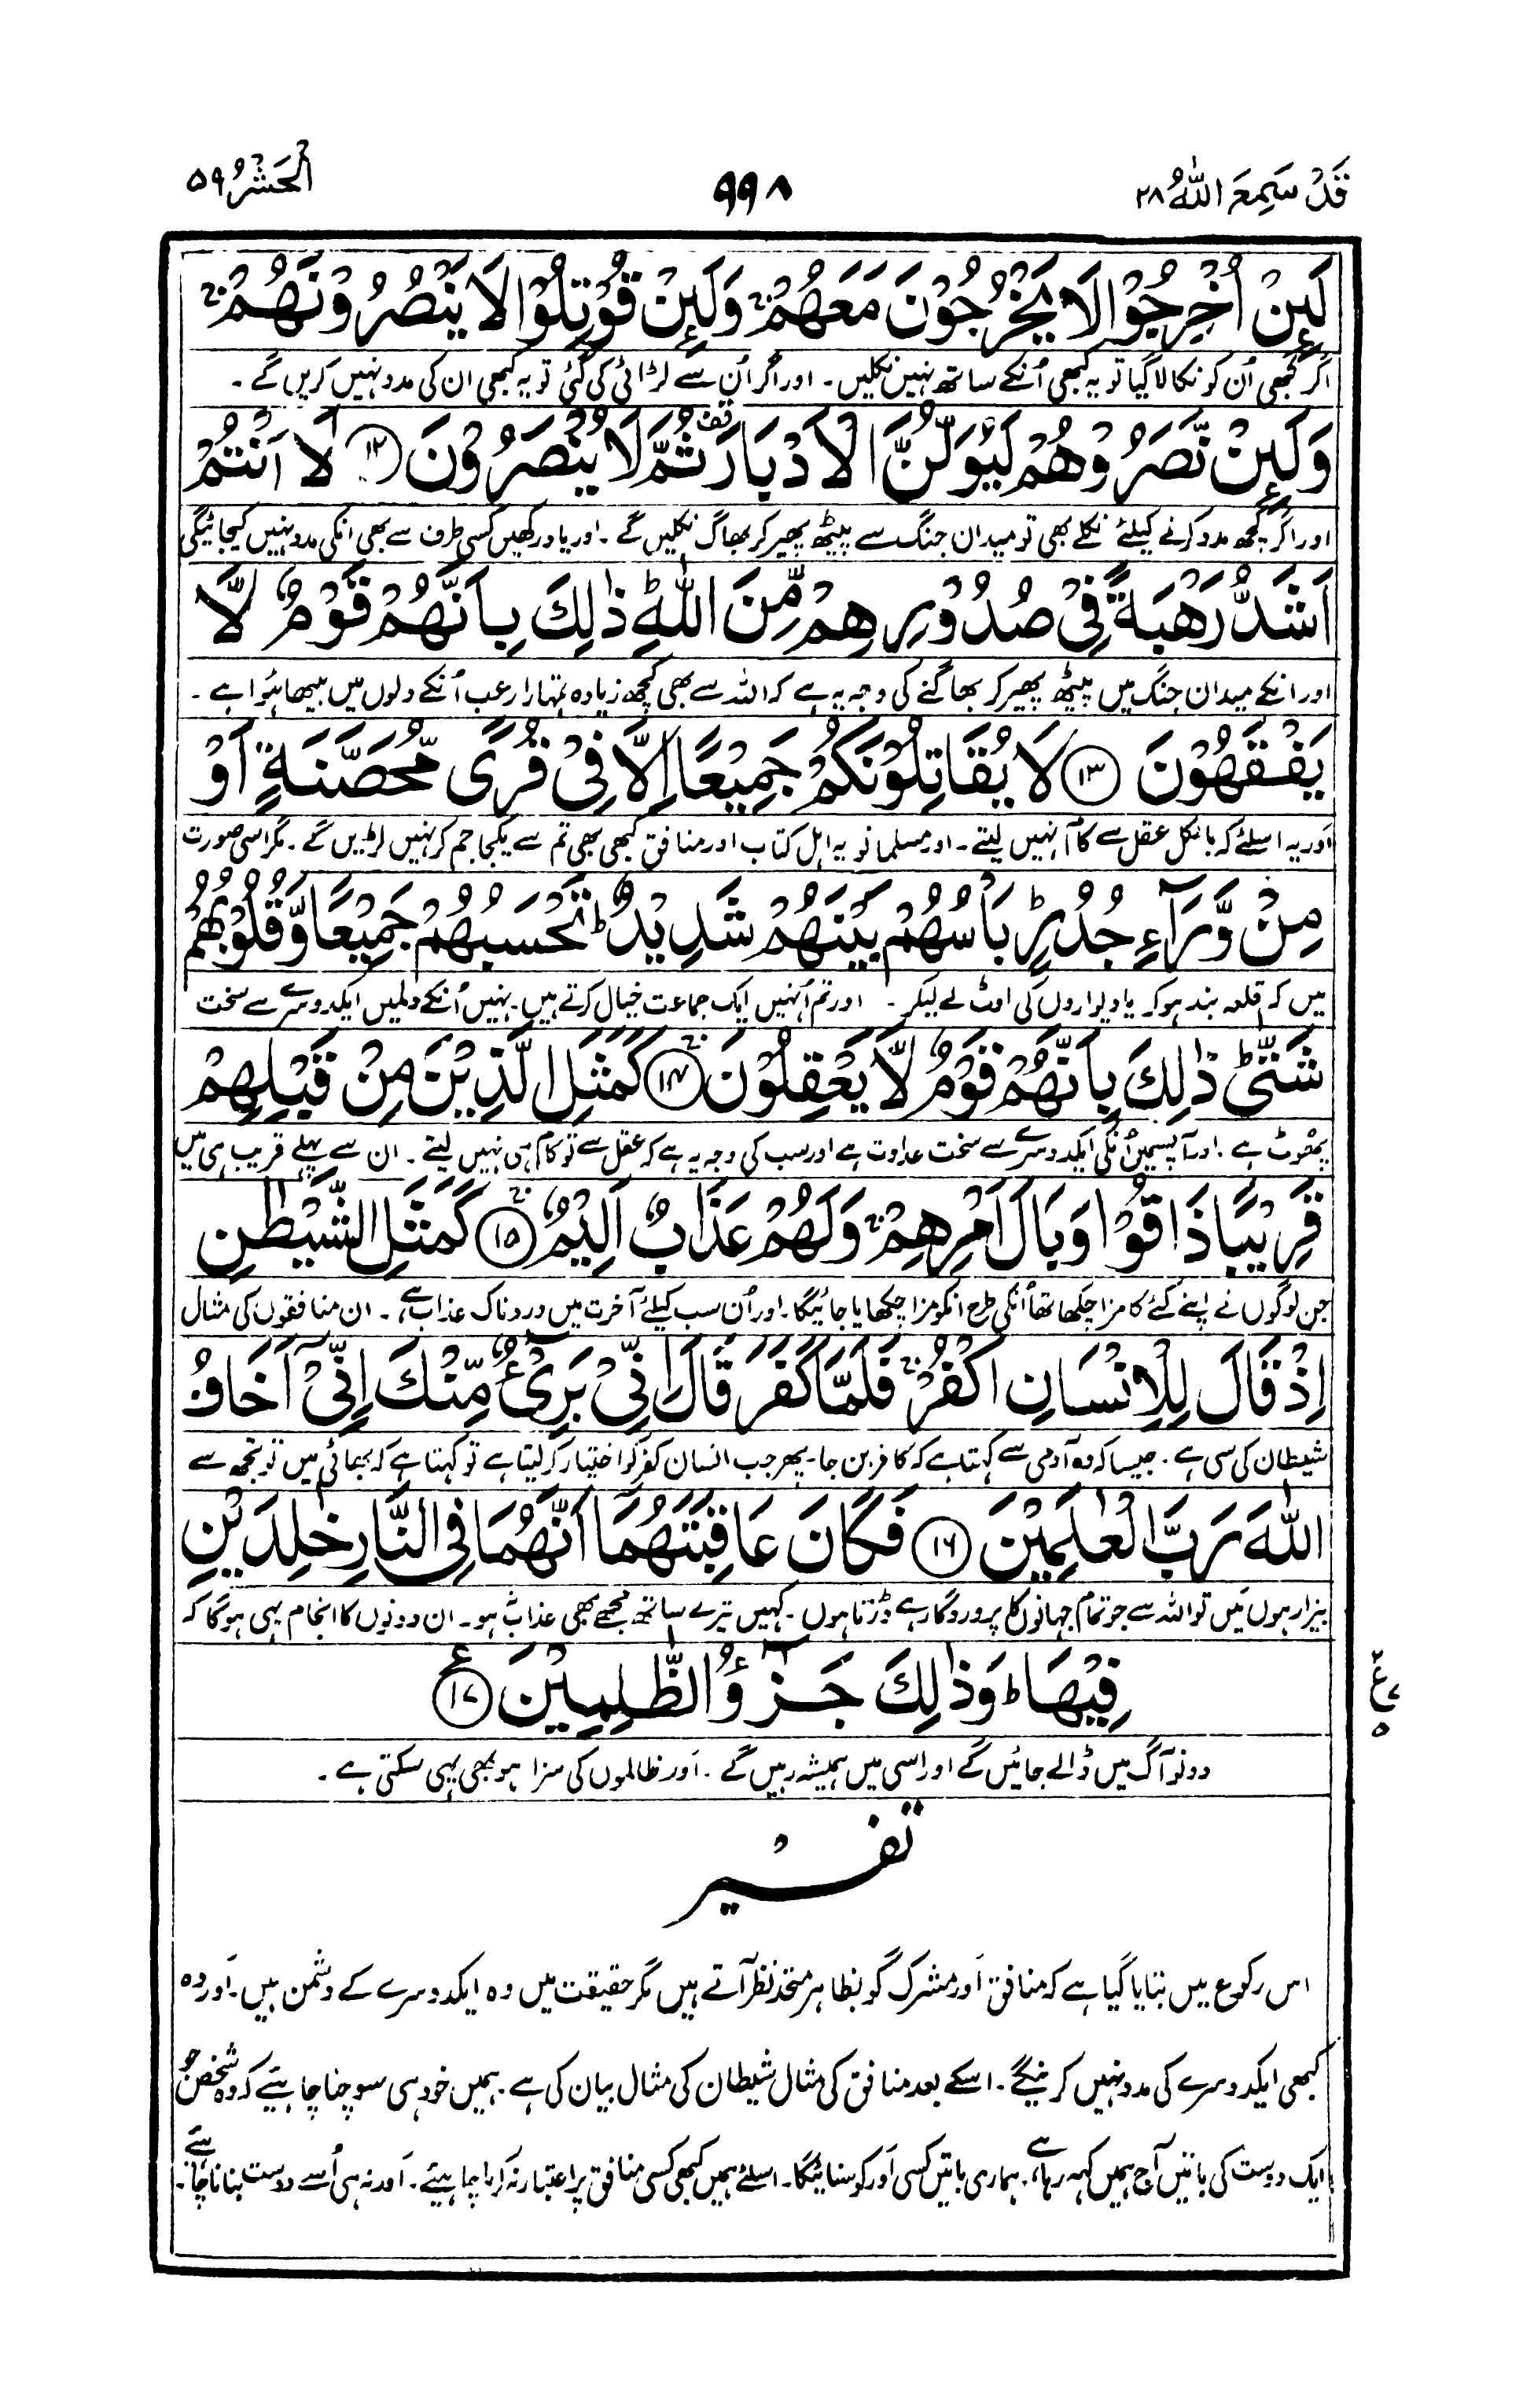 قَدْ سَمِعَ اللّٰهُ ۲۸
۹۹۸
اَلْحَشْرُ ۵۹
لَئِنْ اُخْرِجُوْا لَا يَخْرُجُوْنَ مَعَهُمْ ۚ وَلَئِنْ قُوْتِلُوْا لَا يَنْصُرُوْنَهُمْ ۚ
اگر کبھی اُن کو نکالا گیا تو یہ کبھی اُنکے ساتھ نہیں نکلیں۔ اور اگر اُن سے لڑائی کی گئی تو یہ کبھی ان کی مدد نہیں کریں گے۔
وَلَئِنْ نَّصَرُوْهُمْ لَيُوَلُّنَّ الْاَدْبَارَ ۟ ثُمَّ لَا يُنْصَرُوْنَ ۝۱۲ لَاَ اَنْتُمْ
اور اگر کچھ مدد کرنے کیلئے نکلے بھی تو میدان جنگ سے پیٹھ پھیر کر بھاگ نکلیں گے۔ اور یاد رکھیں کسی طرف سے بھی انکی مدد نہیں کیجائیگی
اَشَدُّ رَهْبَةً فِيْ صُدُوْرِهِمْ مِّنَ اللّٰهِ ؕ ذٰلِكَ بِاَنَّهُمْ قَوْمٌ لَّا
اور انکے میدان جنگ میں پیٹھ پھیر کر بھاگنے کی وجہ یہ ہے کہ اللہ سے بھی کچھ زیادہ تمہارا رعب اُنکے دلوں میں بیٹھا ہُوا ہے۔
يَفْقَهُوْنَ ۝۱۳ لَا يُقَاتِلُوْنَكُمْ جَمِيْعًا اِلَّا فِيْ قُرًى مُّحَصَّنَةٍ اَوْ
اَور یہ اسلئے کہ بالکل عقل سے کام نہیں لیتے۔ اور مسلمانو یہ اہل کتاب اور منافق کبھی بھی تم سے یکجا جم کر نہیں لڑیں گے۔ مگر اسی صورت
مِنْ وَّرَآءِ جُدُرٍ ؕ بَاْسُهُمْ بَيْنَهُمْ شَدِيْدٌ ؕ تَحْسَبُهُمْ جَمِيْعًا وَّقُلُوْبُهُمْ
میں کہ قلعہ بند ہو کر یا دیواروں کی اوٹ لے لیکر۔ اور تم اُنہیں ایک جماعت خیال کرتے ہیں۔ نہیں اُنکے دلمیں ایکدوسرے سے سخت
شَتّٰى ؕ ذٰلِكَ بِاَنَّهُمْ قَوْمٌ لَّا يَعْقِلُوْنَ ۝۱۴ ۚ كَمَثَلِ الَّذِيْنَ مِنْ قَبْلِهِمْ
پھُوٹ ہے۔ اور آپسمیں اُنکی ایکدوسرے سے سخت عداوت ہے اور سب کی وجہ یہ ہے کہ عقل سے تو کام ہی نہیں لیتے۔ ان سے پہلے قریب ہی میں
قَرِيْبًا ذَاقُوْا وَبَالَ اَمْرِهِمْ ۚ وَلَهُمْ عَذَابٌ اَلِيْمٌ ۝۱۵ ۚ كَمَثَلِ الشَّيْطٰنِ
جن لوگوں نے اپنے کئے کا مزا چکھا تھا اُنکی طرح انکو مزا چکھایا جائیگا۔ اور اُن سب کیلئے آخرت میں دردناک عذاب ہے۔ ان منافقوں کی مثال
اِذْ قَالَ لِلْاِنْسَانِ اكْفُرْ ۚ فَلَمَّا كَفَرَ قَالَ اِنِّيْ بَرِيْٓءٌ مِّنْكَ اِنِّيْٓ اَخَافُ
شیطان کی سی ہے۔ جیسا کہ وہ آدمی سے کہتا ہے کہ کافر بن جا۔ پھر جب انسان کفر کو اختیار کر لیتا ہے تو کہتا ہے کہ بھائی میں تو تجھ سے
اللّٰهَ رَبَّ الْعٰلَمِيْنَ ۝۱۶ فَكَانَ عَاقِبَتَهُمَآ اَنَّهُمَا فِي النَّارِ خٰلِدَيْنِ
بیزار ہوں میں تو اللہ سے جو تمام جہانوں کا پروردگار ہے ڈرتا ہوں۔ کہیں تیرے ساتھ مجھے بھی عذاب نہ ہو۔ ان دونوں کا انجام یہی ہوگا کہ
فِيْهَا ؕ وَذٰلِكَ جَزٰٓؤُا الظّٰلِمِيْنَ ۝۱۷ ع
۲
ع ۷
۵
دونو آگ میں ڈالے جائیں گے اور اسی میں ہمیشہ رہیں گے۔ اَور ظالموں کی سزا ہو بھی یہی سکتی ہے۔
تفسیر
اس رکوع میں بتایا گیا ہے کہ منافق اَور مشرک گو بظاہر متحد نظر آتے ہیں مگر حقیقت میں وہ ایکدوسرے کے دشمن ہیں۔ اَور وہ
کبھی ایکدوسرے کی مدد نہیں کرینگے۔ اسکے بعد منافق کی مثال شیطان کی مثال بیان کی ہے۔ ہمیں خود ہی سوچنا چاہیئے کہ وہ شخص جو
ایک دوست کی باتیں آج ہمیں کہہ رہا ہے، ہماری باتیں کسی اَور کو سنائیگا۔ اسلئے ہمیں کبھی کسی منافق پر اعتبار نہ کرنا چاہیئے۔ اَور نہ ہی اُسے دوست بنانا چاہئے۔